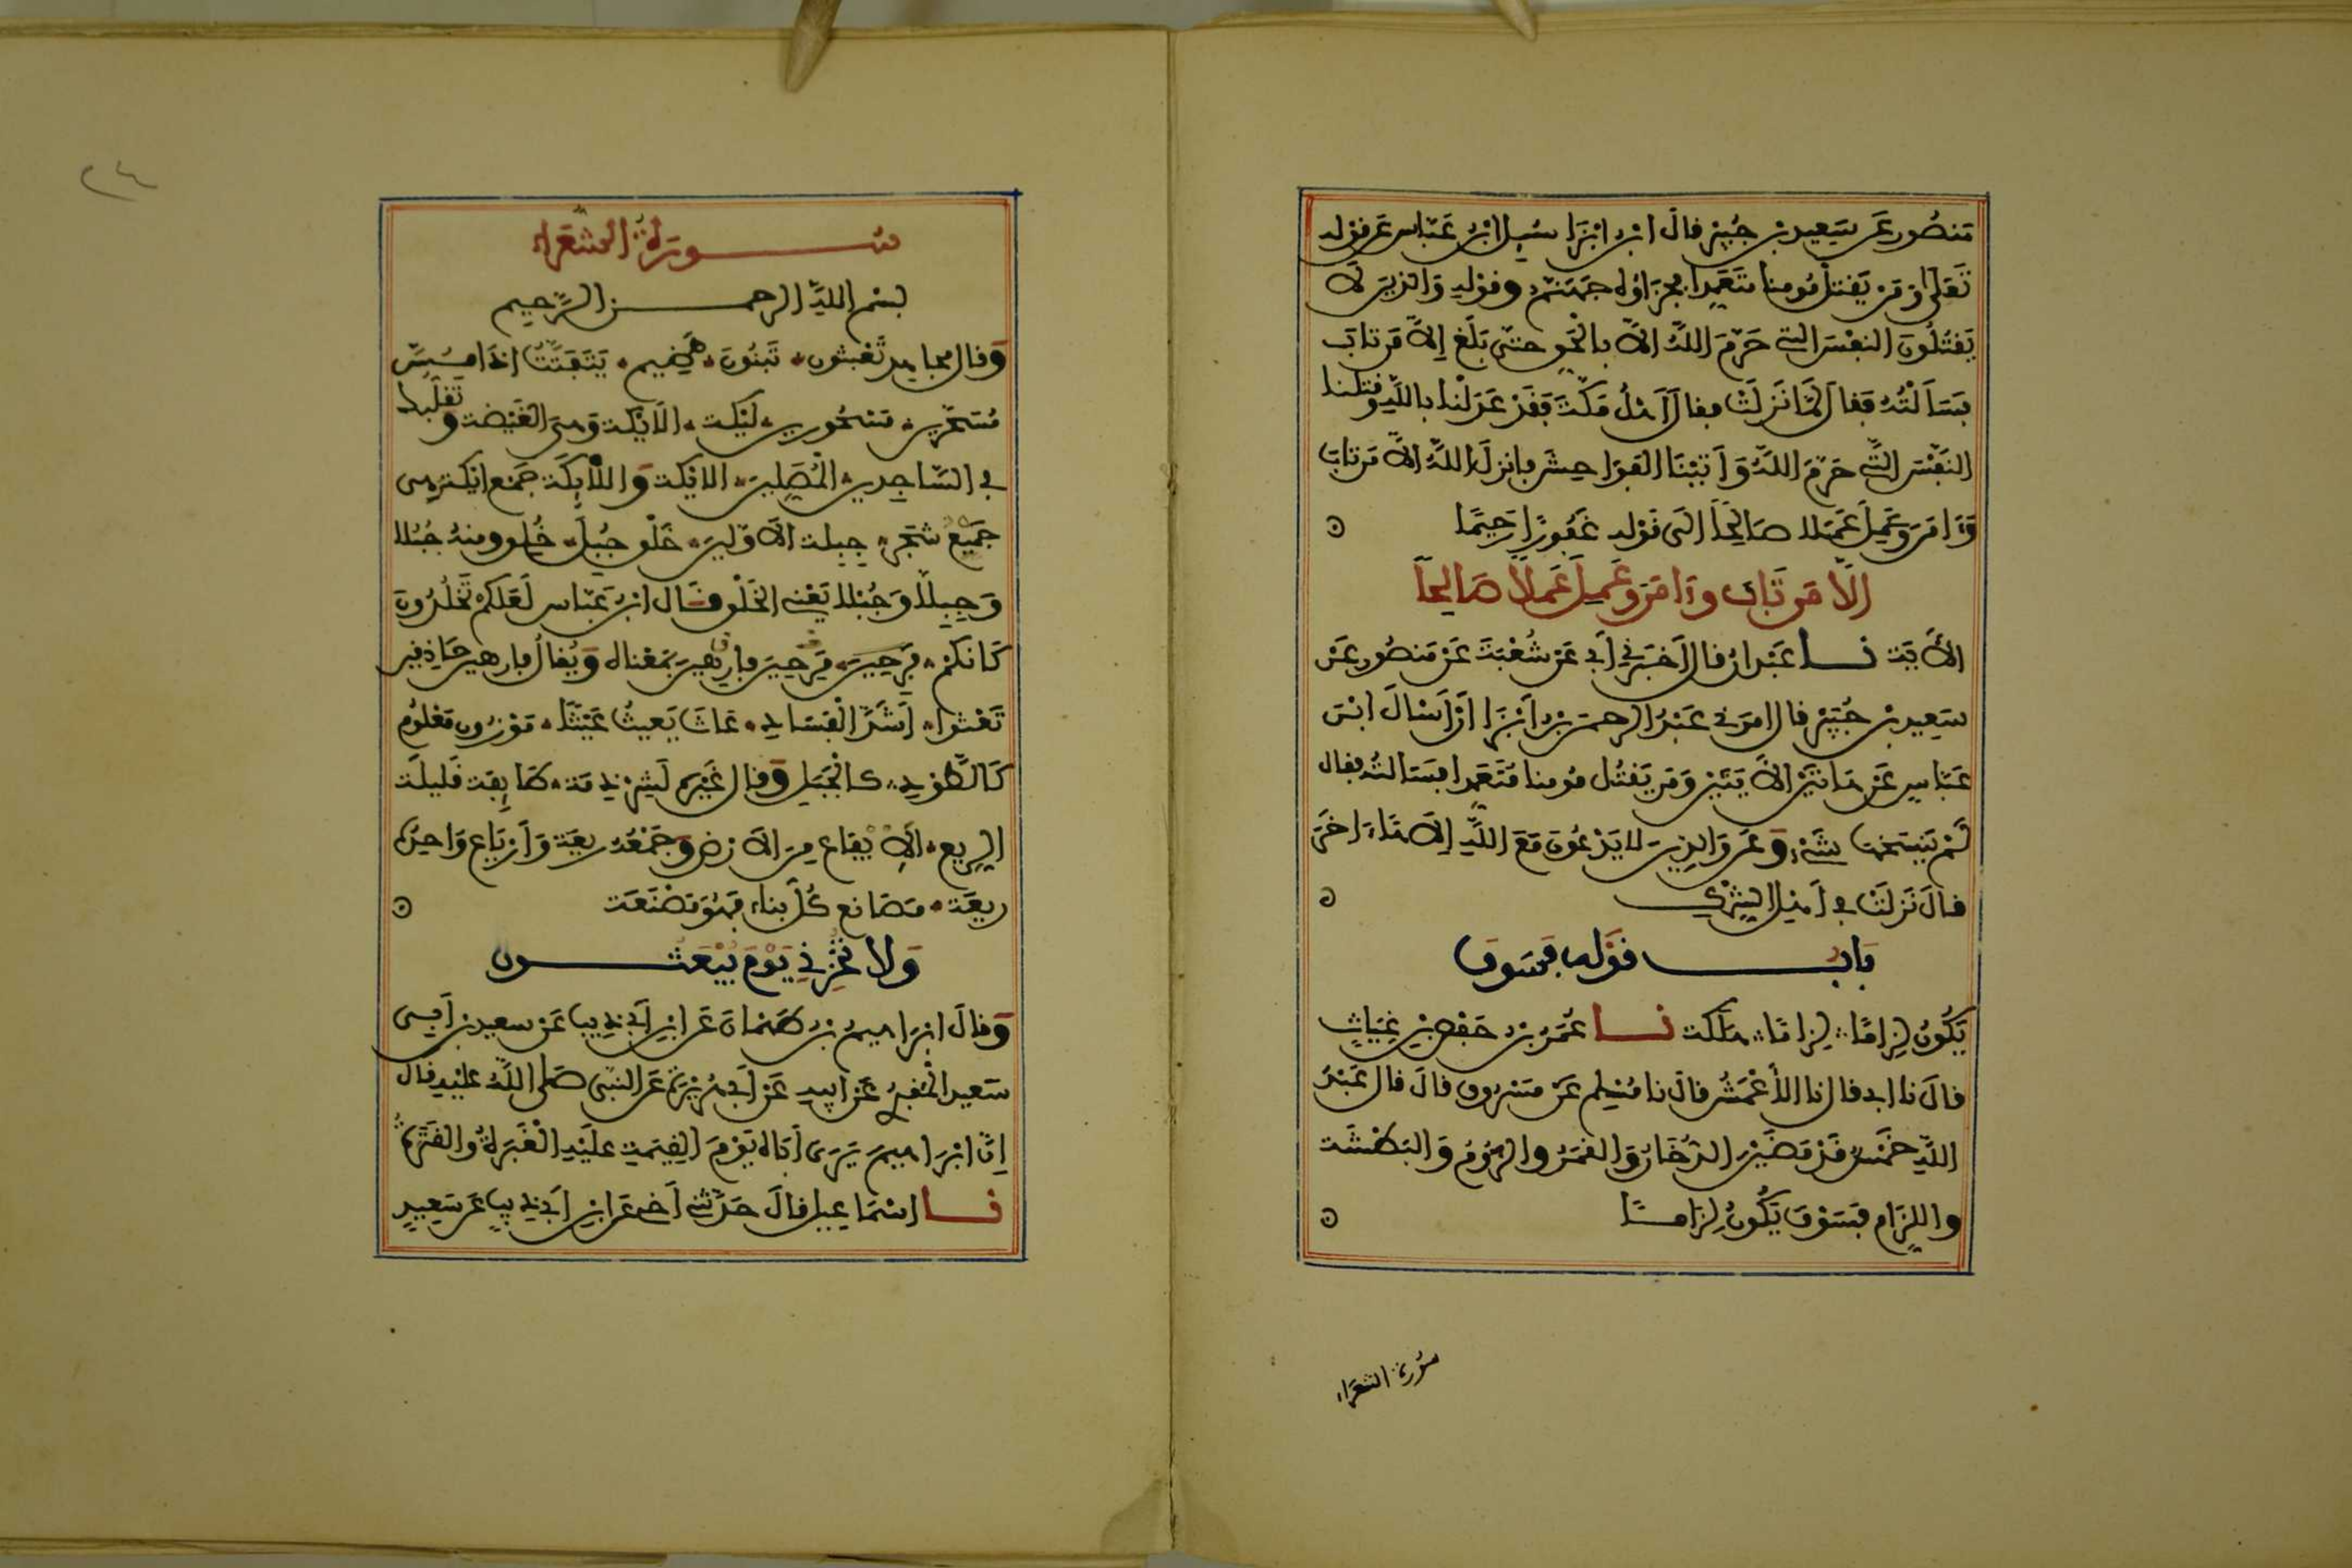 مَنصُور عَن سَعِيد بن جُبَيْر قال ابن ابْزَا سُيِل ابْن عَبّاس عَن قوْله
تَعَلى وَمَنْ يَقتل مُومنا متَعَمِدا فجزَاؤه جهَنّم وقوْله وَالذِينَ لَا
يَقتُلُونَ النفْسَ التي حَرّمَ اللهُ الاَّ بالْحَق حتّى بَلَغ إلاَّ مَن تابَ
فسَألْتُهُ فَقال لمَّا نَزلتْ قال أهْلُ مَكّةَ فقَدْ عَدَلْنا باللهِ وقتلنا
النفْسَ التي حَرّمَ اللهُ وَأتَيْنَا الفوَاحِشَ فانزلَ اللهُ الاَّ مَن تابَ
وَءَامَنَ وَعَمِلَ عَمَلا صَالِحًا الَى قَوْله غَفُورًا رَحِيمًا
إلّا مَن تَابَ وءَامَنَ وَعَمِلَ عَمَلًا صَالِحًا
الأَيَةَ نا عَبْدانُ قال أخبَرَني أبي عَنْ شُعْبَةَ عَنْ مَنصُور عَنْ
سَعِيد بن جُبَيْر قال امَرَني عَبْدُ الرحمن بن أبْزَا أنْ أسْألَ ابْنَ
عَبّاسٍ عَنْ هَاتَيْنِ الأَيَتَيْنِ وَمَن يَقتُل مُومنا مُتَعَمدا فسَالتُه فقال
لَمْ يَنسَخها شَيْء وَعَن وَالذِينَ لا يَدْعُونَ مَعَ اللهِ إلَاهًا ءَاخَرَ
قالَ نَزلَتْ في أهْلِ الشِرْكِ
بَاب قَوْله فسَوفَ
يَكُونُ لِزامًا لِزامًا هَلَكة نا عُمَرُ بْنُ حَفْصِ بْنِ غِيَاثٍ
قالَ نا ابي قال نا الأعْمَشُ قالَ نا مُسْلِم عَنْ مَسْرُوق قالَ قال عَبْدُ
اللهِ خَمْسٌ قَدْ مَضَيْنَ الدُّخَانُ وَالقمَرُ والرُّومُ وَالبَطْشَة
واللِزَام فسَوْفَ يَكُونُ لِزَامًا
سُورة الشعَراء
٢٤
سُورَةُ الشُعَراء
بسْم الله الرحمن الرَّحِيم
وَقال مجاهد تَعْبثون تَبْنُونَ هَضِيم يَتَفَتَّتُ إذَا مُسَّ
مُسَحَّرين مَسْحُورين لَيْكة الأيْكة وَهي الغَيْضة وتَقَلُبك
في السّاجِدين المُصَلِينَ الايْكة وَاللَّايكَة جَمع ايْكة وهي
جَمِيعُ شجَر جِبلة الأَوَّلِينَ خَلْق جُبِلَ خُلِق ومنهُ جُبُلا
وَجِبِلًا وَجُبْلا يَعْني الخَلْق قَال ابْنُ عَبّاس لَعَلَّكم تَخْلُدُونَ
كَأنكمْ فرِحِينَ مَرِحِينَ فارِهِينَ بمَعْناه وَيُقالُ فارهين حَاذِقين
تَعْثوا أشَدُّ الْفَسَادِ عَاثَ يَعيثُ عَيْثًا مَوْزون مَعْلوُم
كَالطَّوْدِ كالجَبَلِ وَقال غَيْرُه لَشِرْذِمَة طَايِفة قَلِيلَة
الرِيعِ الاِيْفاع مِنَ الأَرْضِ وَجَمْعُه رِيعَة وَأرْيَاع وَاحِدُهُ
ريعَة مَصَانعَ كُلُّ بناء فهُوَ مَصْنَعَة
وَلا تُخْزِني يَوْمَ يُبْعَثُونَ
وَقالَ ابْرَاهيمُ بْنُ طَهْمانَ عَن ابْنِ أبي ذِيب عَنْ سعيد بن أبي
سَعيد المَقبُري عَنْ ابيهِ عَنْ أبي هُرَيْرَة عَن النبي صَلى اللهُ عليْهِ قالَ
إنَّ ابْرَاهيمَ يَرَى أبَاه يَوْمَ القِيَمةِ عليْهِ الغَبَرَةُ والقَتَرَةُ
نا اسْمَاعِيل قالَ حَدّثني أخي عَن ابْنِ أبي ذِيبٍ عَن سَعِيدٍ